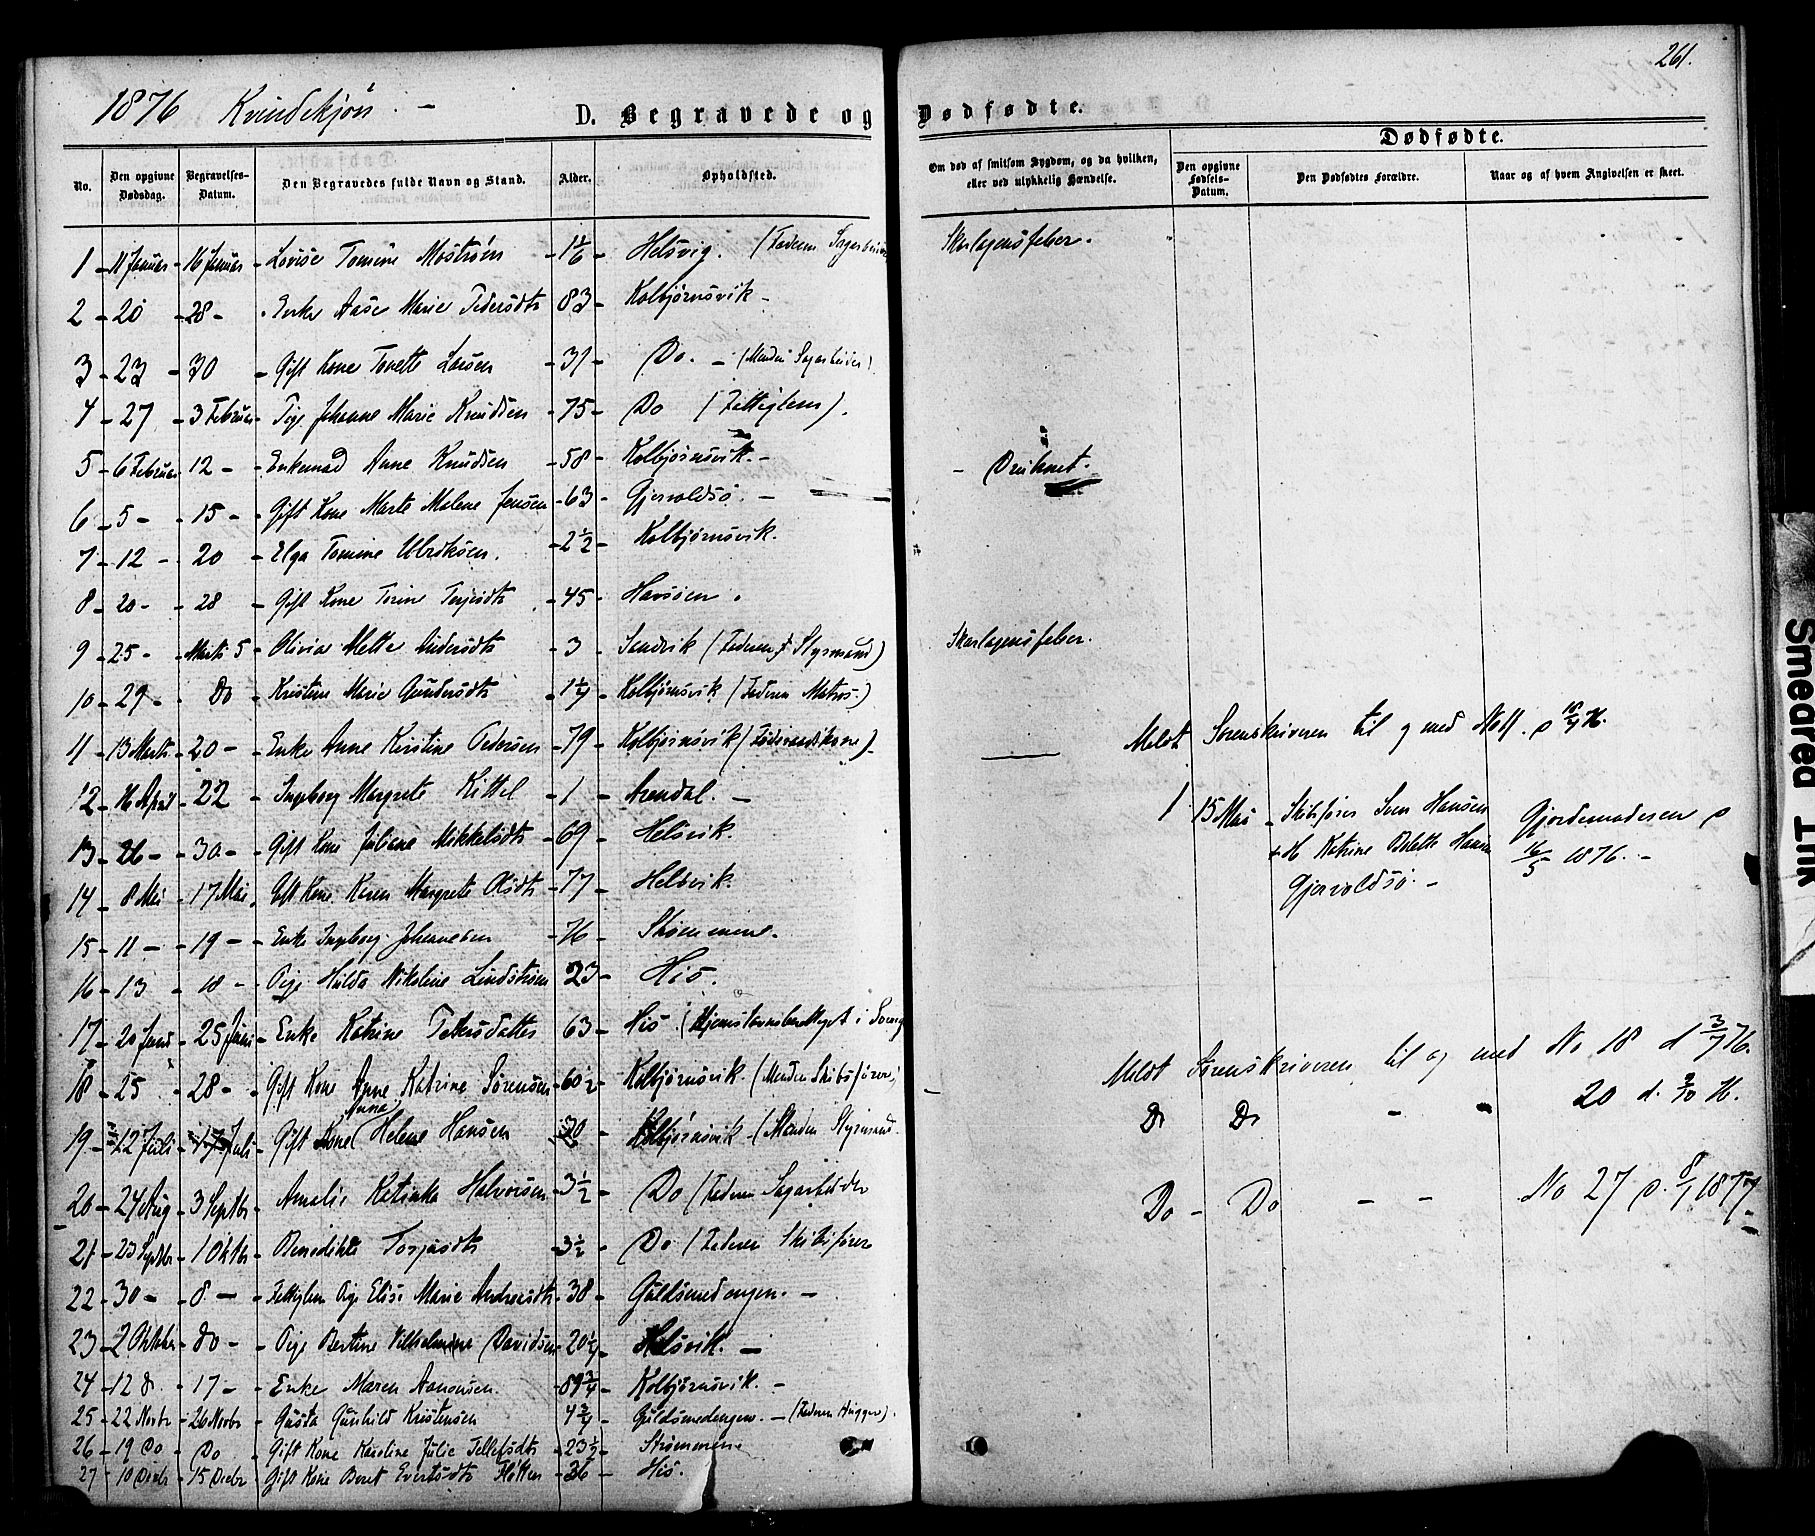 261.
1876 Kvindekjøn. -
D. Begravede og Dødfødte.
Dødfødte.
No. Den opgivne Dødsdag. Begravelses-Datum. Den Begravedes fulde Navn og Stand. Alder. Opholdsted. Om død af smitsom Sygdom, og da hvilken, eller ved ulykkelig Hændelse. Den opgivne Fødsels-Datum. Den Dødfødtes Forældre. Naar og af hvem Angivelsen er skeet.
1 - 11 Januar - 16 Januar - Lovise Tomine Moström - 1 1/6 Helsvig. (Faderen Sagarbeider Skarlagensfeber.
2 - 20 - 28 - Enke Aase Marie Pedersdtr - 83 - Kolbjørnsvik -
3 - 23 - 30 - Gift Kone Tonette Larsen - 31 - Do. - (Manden Sagarbeider).
4 - 27 - 3 Februar - Pige Johanne Marie Knudsen - 75 - Do (Fattiglem).
5 - 6 Februar - 12 - Enkemad Anne Knudsen - 58 - Kolbjørnsvik. - - Druknet.
6 - 5 - - 15 - Gift Kone Marte Malene Jensen - 63 - Gjervoldsö. -
7 - 12 - - 20 - Elga Tomine Ulriksen. - 2 1/2 - Kolbjørnsvik.
8 - 20 - - 28 - Gift Kone Torine Terjesdtr - 45 - Havsöen.
9 - 25 - - Marts 5 - Olivia Mette Andersdtr - 3 - Sandvik (Faderen Styrmand) Skarlagensfeber.
10 - 29 - - Do - Kristine Marie Gundersdtr - 1 1/4 Kolbjørnsvik (Faderen Matros.)
11 - 13 Marts - 20 - - Enke Anne Kirstine Pedersen - 79 - Kolbjørnsvik -
Meldt Sorenskriveren til og med No 11.
12 - 16 April - 22 - Ingeborg Margrete Kittel - 1 - Arendal. -
13 - 26 - - 30 - - Gift Kone Juliane Mikkelsdtr - 69 - Helsvik.
1 15 Mai - Skibsfører Sven Hansen
+ H Katrine Bolette Hansen
Gjervoldsö. -
Gjordemoderen d
16/5 1876. -
14 - 8 Mai - 17 Mai. Gift Kone Karen Margrete Olsdtr - 77 - Helsvik.
15 - 11 - - 19 - - Enke Ingeborg Johannesen - 76 - Strømmene.
16 - 13 - 18 - - Pige Hulda Nikoline Lindstrøm - 23 - His.
17 - 20 Juni - 25 Juni - Enke Katrine Petersdatter - 63 - His.
Meldt Sorenskriveren til og med No 18 d 3/7 76.
18 - 25 - 28 - - Gift Kone Anne Katrine Sørensen - 60 1/2 - Kolbjørnsvik. (Manden Skibsfører)
Do Do - - 20 d. 2/10 76.
19 - 12 Juli - 17 Juli - Gift Kone Anna Helene Hansen - 30 - Kolbjørnsvik - (Manden Styrmand.
20 - 24 Aug - 3 Septbr - Amalie Katinka Halvorsen - 3 1/2 - Do (Faderen Sagarbeider
Do - Do - - No 27 d. 8/1 1877.
21 - 23 Septbr - 1 Oktbr - Benedikte Torjusdtr - 3 1/2 - Do (Faderen Skibsfører
22 - 30 - - 8 - - Fattiglem Pige Elise Marie Andreasdtr - 38 - Guldsmedengen. -
23 - 2 Oktober - do - - Pige Bertine Vilhelmine Davidsen - 20 1/4 - Helsvik. -
24 - 12 d. - 17 - - Enke Maren Aanonsen. - 89 3/4 - Kolbjørnsvik. -
25 - 22 Novbr - 26 Novbr - Gusta Gunhild Kristensen 4 3/4 - Guldsmedengen. - (Faderen Hugger).
26 - 19 Do - Do - Gift Kone Karoline Julie Tellefsdtr - 23 1/2 - Strømmene
27 - 10 Decbr - 15 Decbr - Gift Kone Beret Evertsdtr - 36 - His.
Smeared Ink